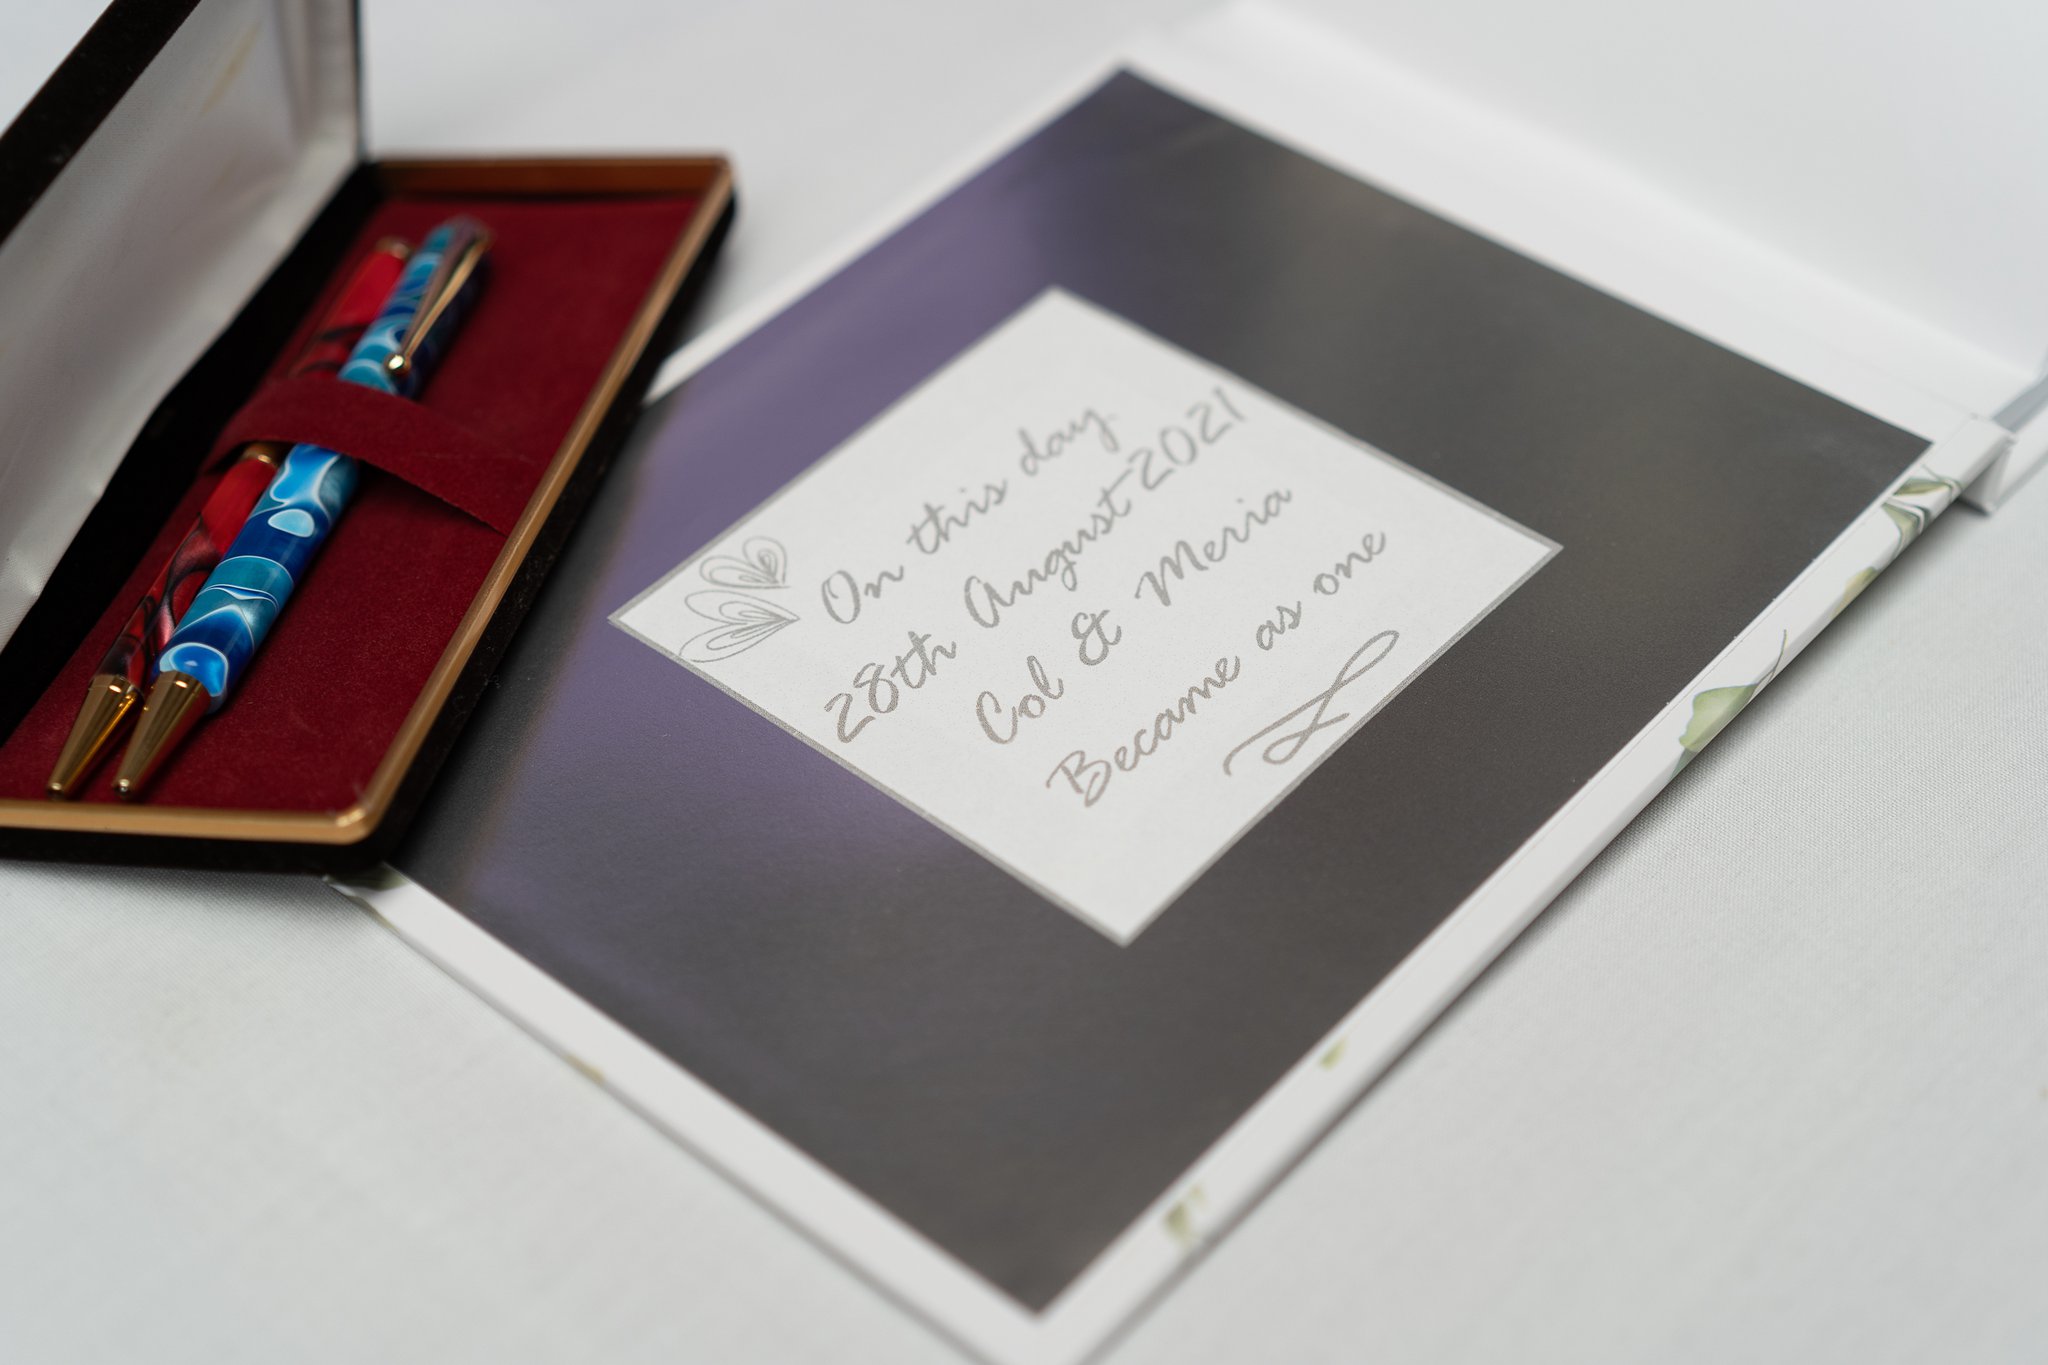 On this day
28th August 2021
Col & Meria
Became as one